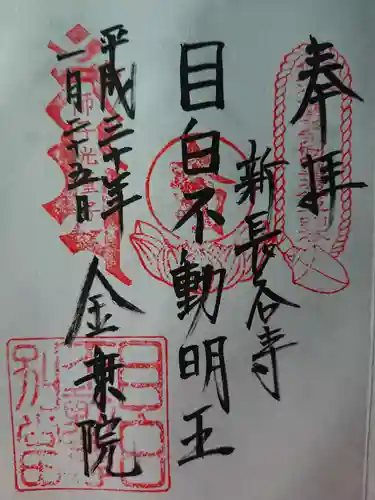 奉拝
新長谷寺
目白不動明王
平成三十年
一月二十五日
金乗院